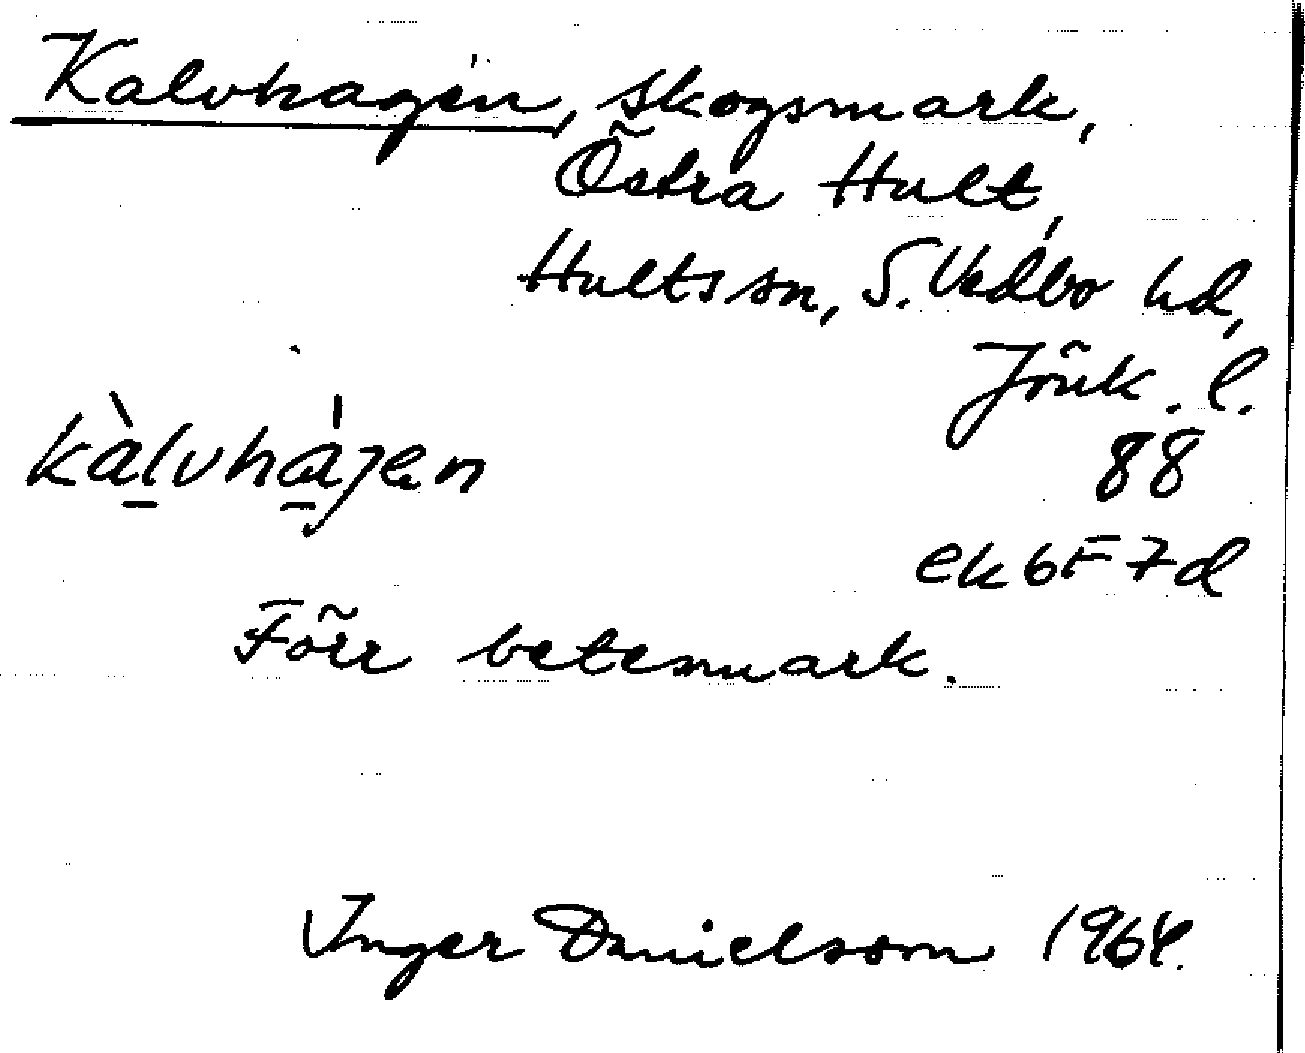 Kalvhagen, skogsmark,
Östra Hult,
Hults sn, S. Vedbo hd,
Jönk. l.
kàlvhàjen
88
ek 6F7d
Förr betesmark.
Inger Danielsson 1964.